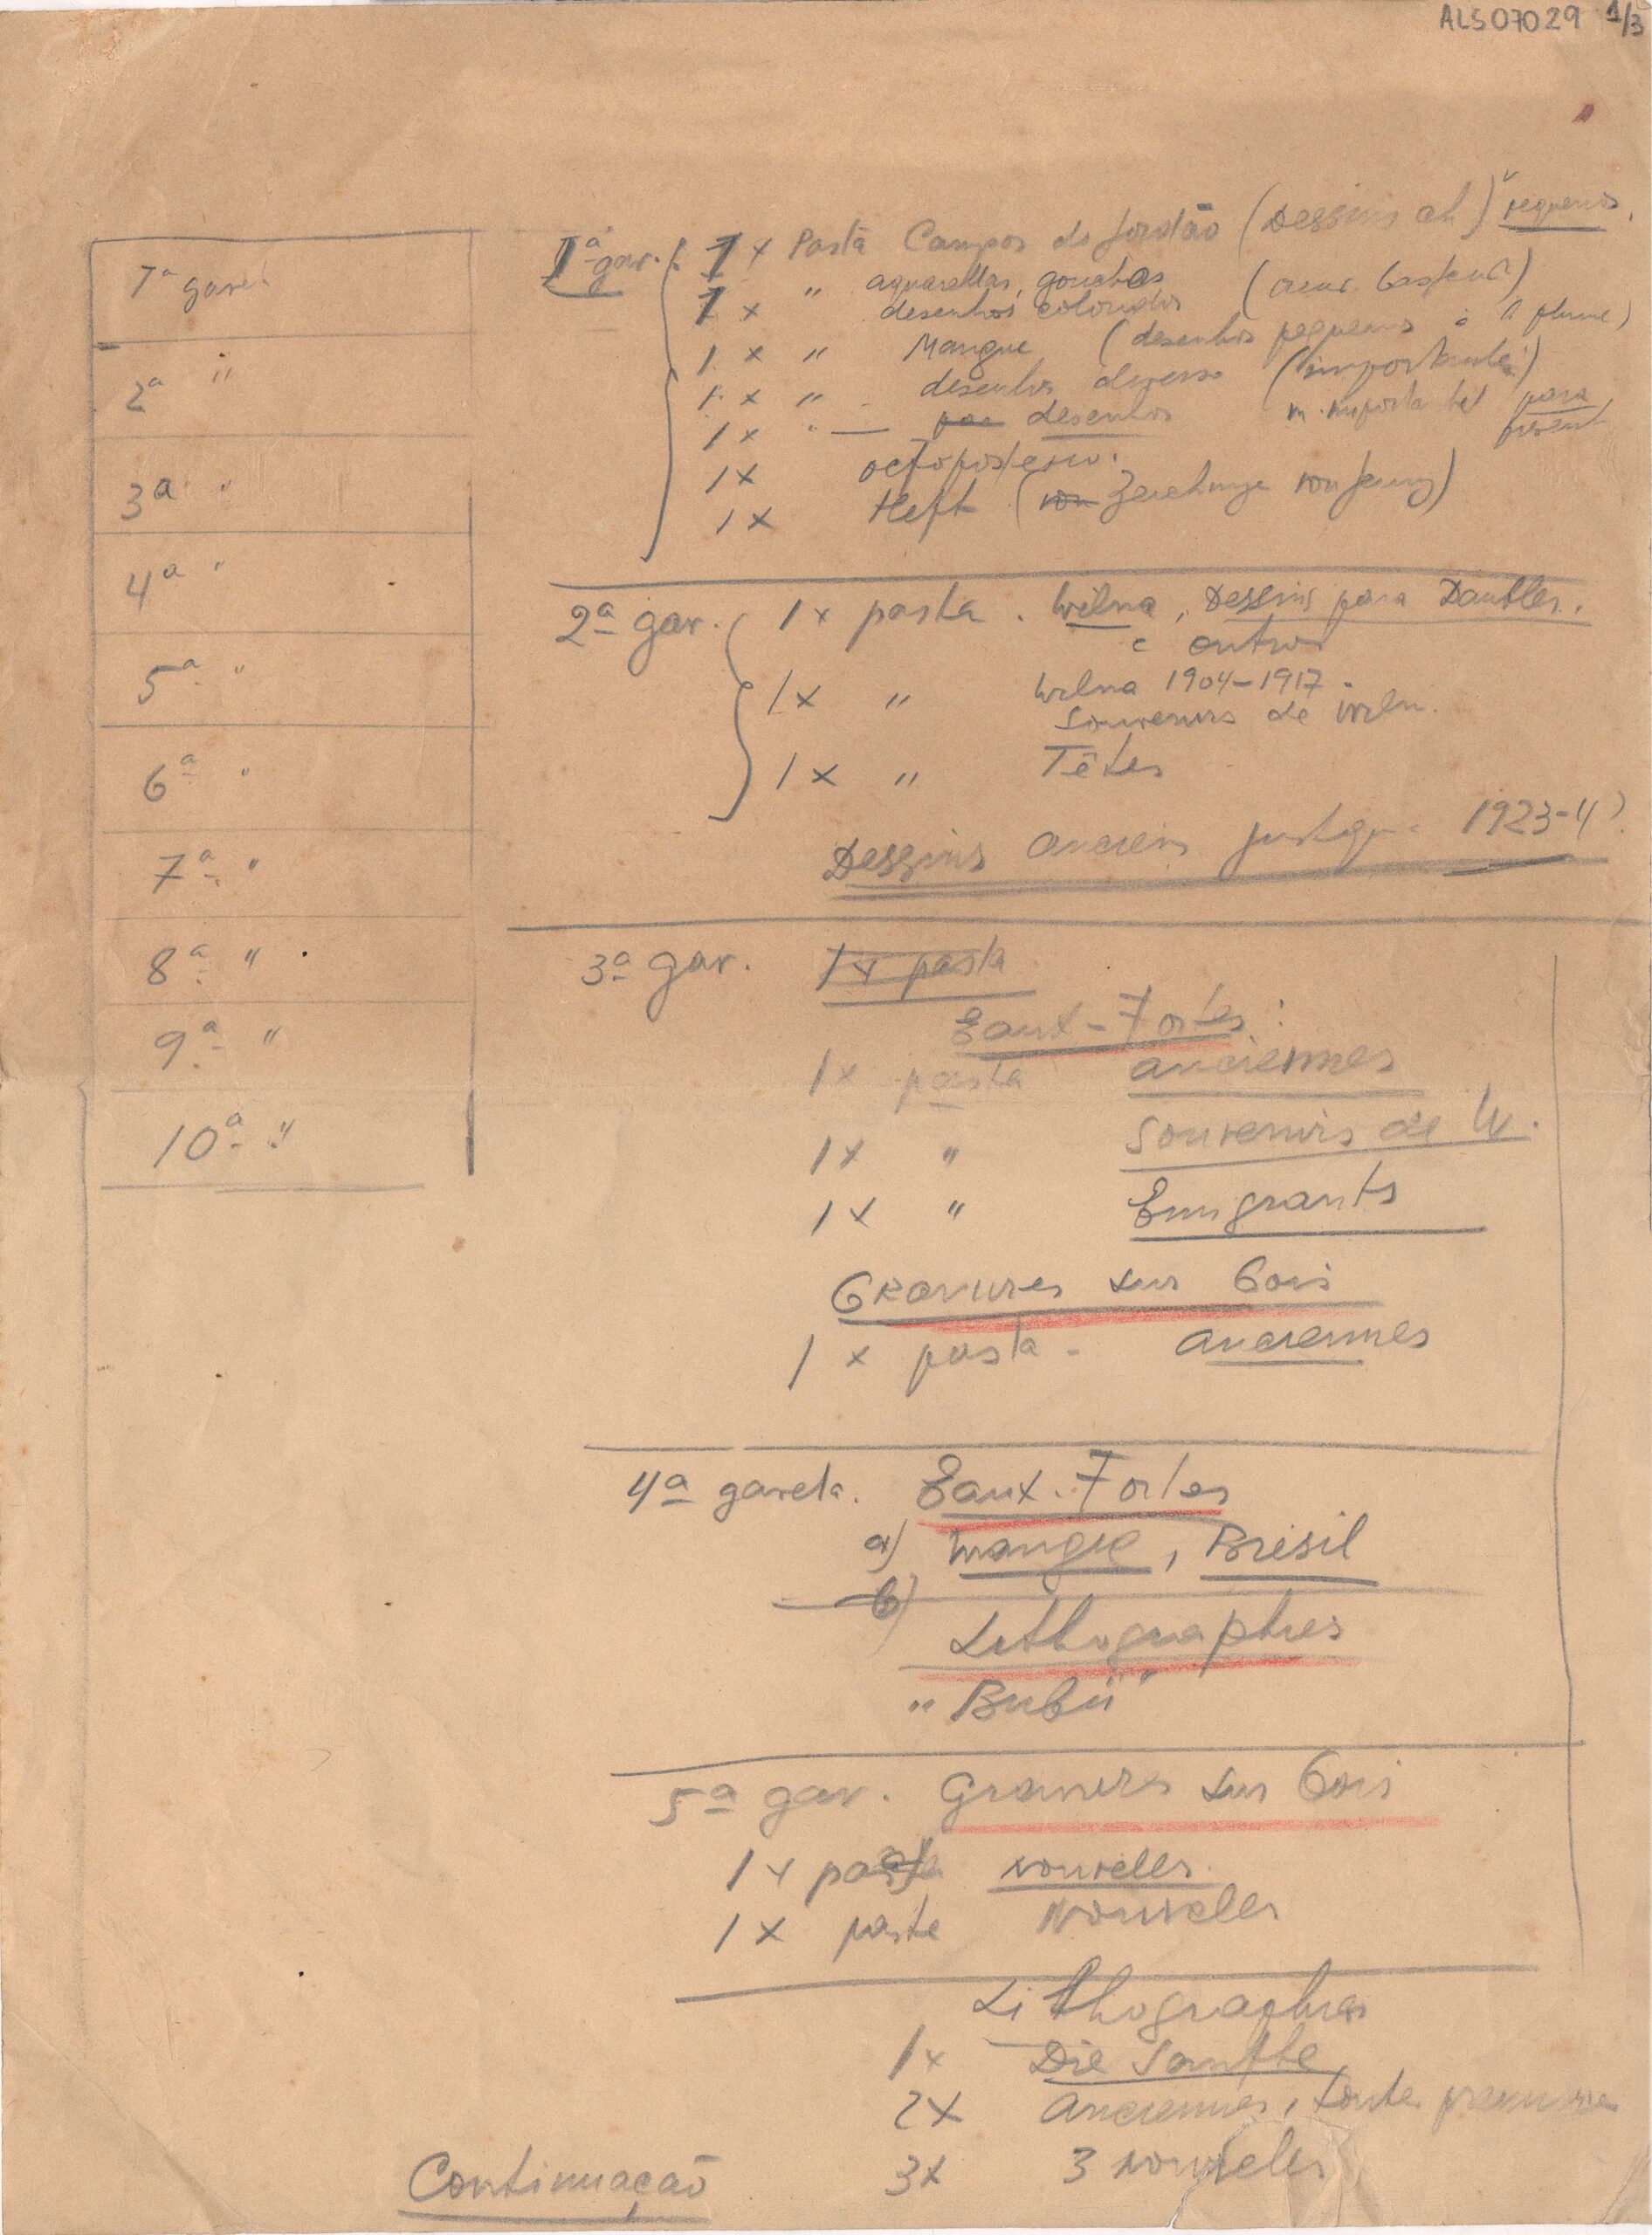 ALS07029 1/3
1ª gavet
2ª "
3ª "
4ª "
5ª "
6ª "
7ª "
8ª "
9ª "
10ª "
1ª gav. 1 x Pasta Campos do Jordão (Dessins ch) pequenos.
1 x " aquarellas, gouches
desenhos coloridos
1 x " Mangue (desenhos pequenos à la plume)
1 x " desenhos diversos (importantes)
1 x " — desenhos para
present
1x
1x Heft (von Zeichnunge von Jenny)
2ª gav. 1x pasta. Wilna, Dessins para Daubler.
e outros
1x " Wilna 1904-1917.
Souvenirs de Wiln.
1x " Têtes
Dessins anciens jusque 1923-4?
3ª gav. 1x pasta
Eaux-Fortes:
1x pasta anciennes
1x " Souvenirs de W.
1x " Emigrants
Gravures sur bois
1x pasta - anciennes
4ª gaveta. Eaux-Fortes
a) Mangue, Brésil
b)
Lithographies
"Bubü"
5ª gav. Gravures sur bois
1x pasta nouvelles.
1x paste nouvelles
Lithographies
1x Die Sanfte
2x Anciennes, toutes premières
3x 3 nouvelles
Continuação